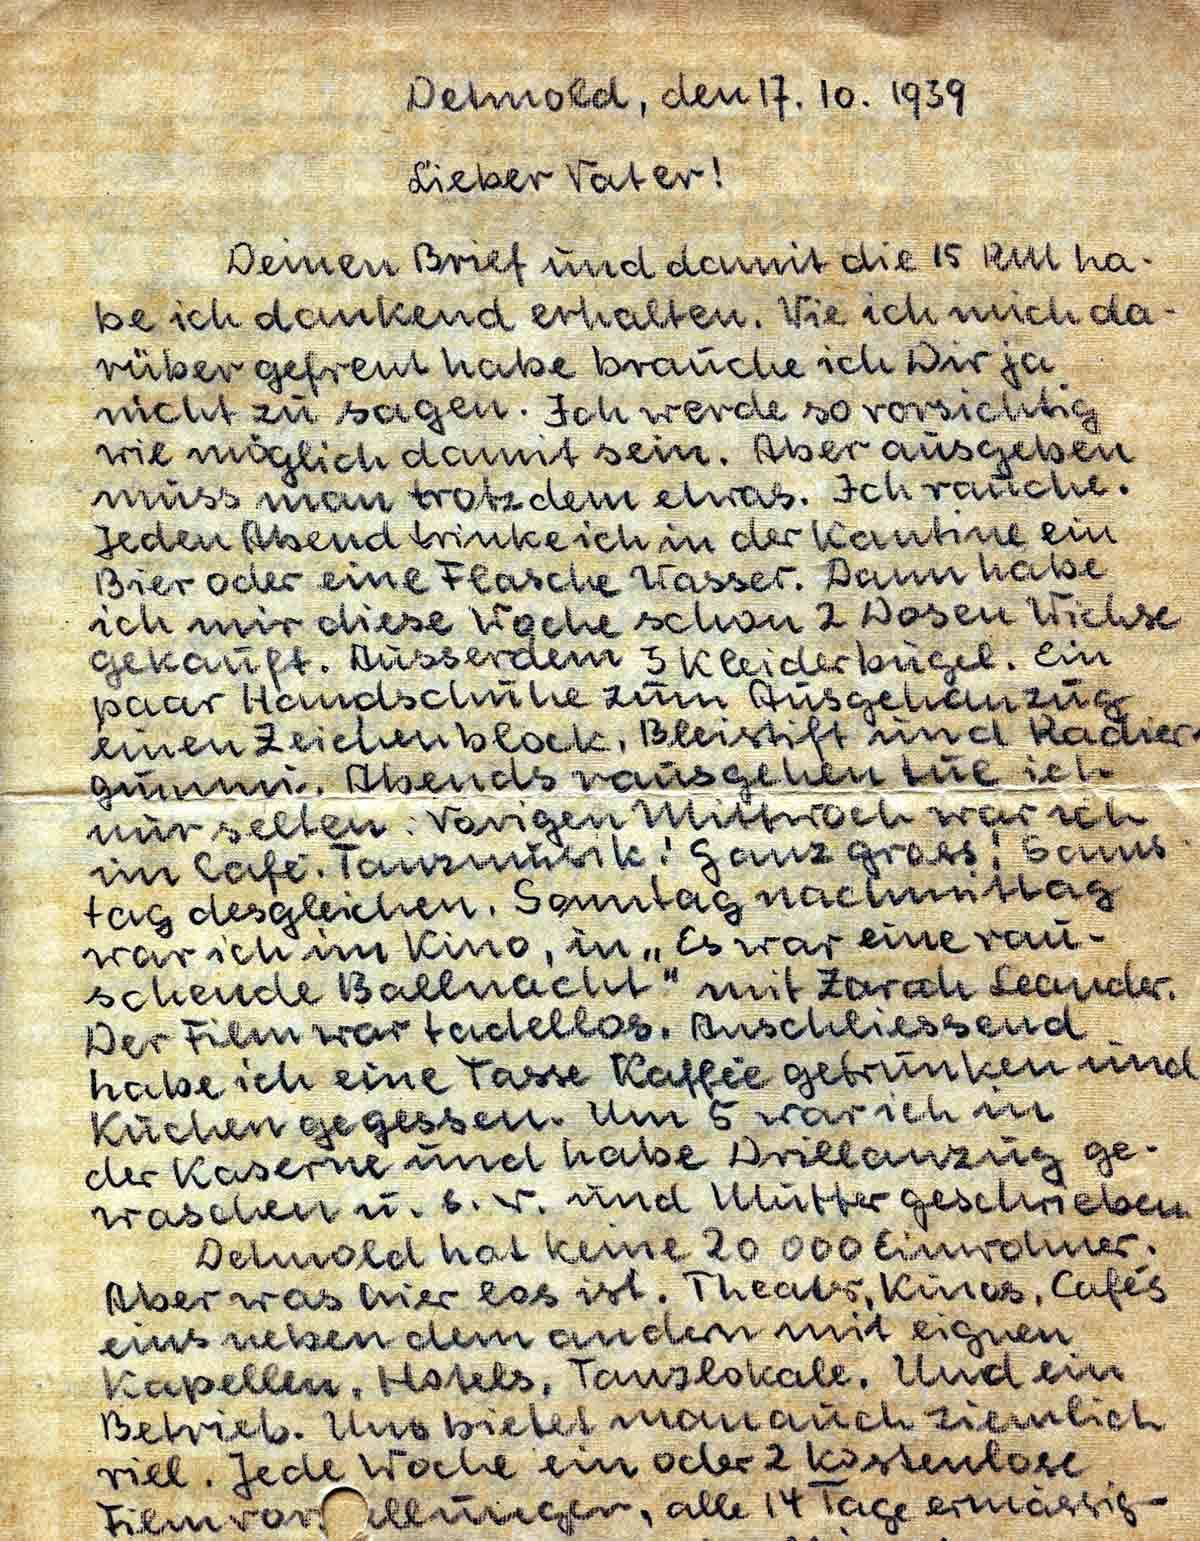 Detmold, den 17. 10. 1939
Lieber Vater!
Deinen Brief und damit die 15 RM ha-
be ich dankend erhalten. Wie ich mich da-
rüber gefreut habe brauche ich Dir ja
nicht zu sagen. Ich werde so vorsichtig
wie möglich damit sein. Aber ausgeben
muss man trotzdem etwas. Ich rauche.
Jeden Abend trinke ich in der Kantine ein
Bier oder eine Flasche Wasser. Dann habe
ich mir diese Woche schon 2 Dosen Wichse
gekauft. Ausserdem 3 Kleiderbügel. Ein
paar Handschuhe zum Ausgehanzug
einen Zeichenblock, Bleistift und Radier-
gummi. Abends rausgehen tue ich
nur selten. Vorigen Mittwoch war ich
im Café. Tanzmusik! Ganz gross! Sams-
tag desgleichen. Sonntag nachmittag
war ich im Kino, in „Es war eine rau-
schende Ballnacht" mit Zarah Leander.
Der Film war tadellos. Anschliessend
habe ich eine Tasse Kaffee getrunken und
Kuchen gegessen. Um 5 war ich in
der Kaserne und habe Drillanzug ge-
waschen u. s. w. und Mutter geschrieben
Detmold hat keine 20 000 Einwohner.
Aber was hier los ist. Theater, Kinos, Cafés
eins neben dem andern mit eignen
Kapellen, Hotels, Tanzlokale. Und ein
Betrieb. Uns bietet man auch ziemlich
viel. Jede Woche ein oder 2 kostenlose
Filmvorstellungen, alle 14 Tage ermässig-